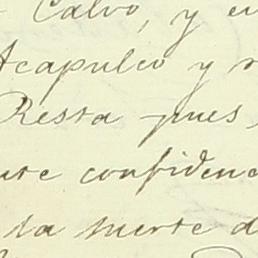 Calvo, y en
Acapulco y
Resta pues,
confiden
la suerte d